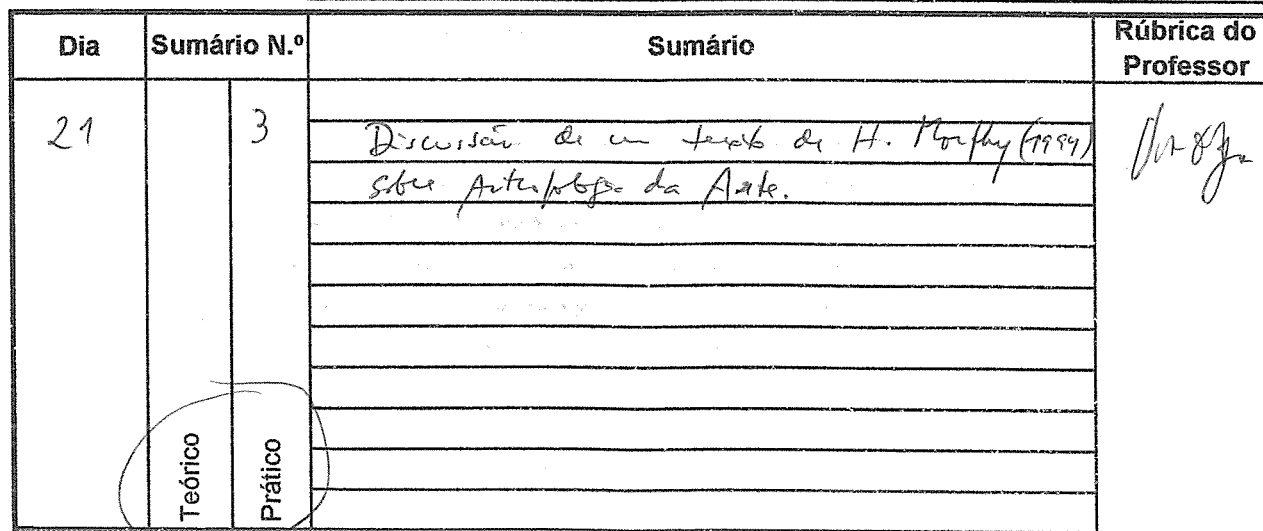 Dia Sumário N.º Sumário Rúbrica do Professor
21 3 Discussão de um texto de H. Morphy (1994)
sobre Antropologia da Arte.
Teórico Prático